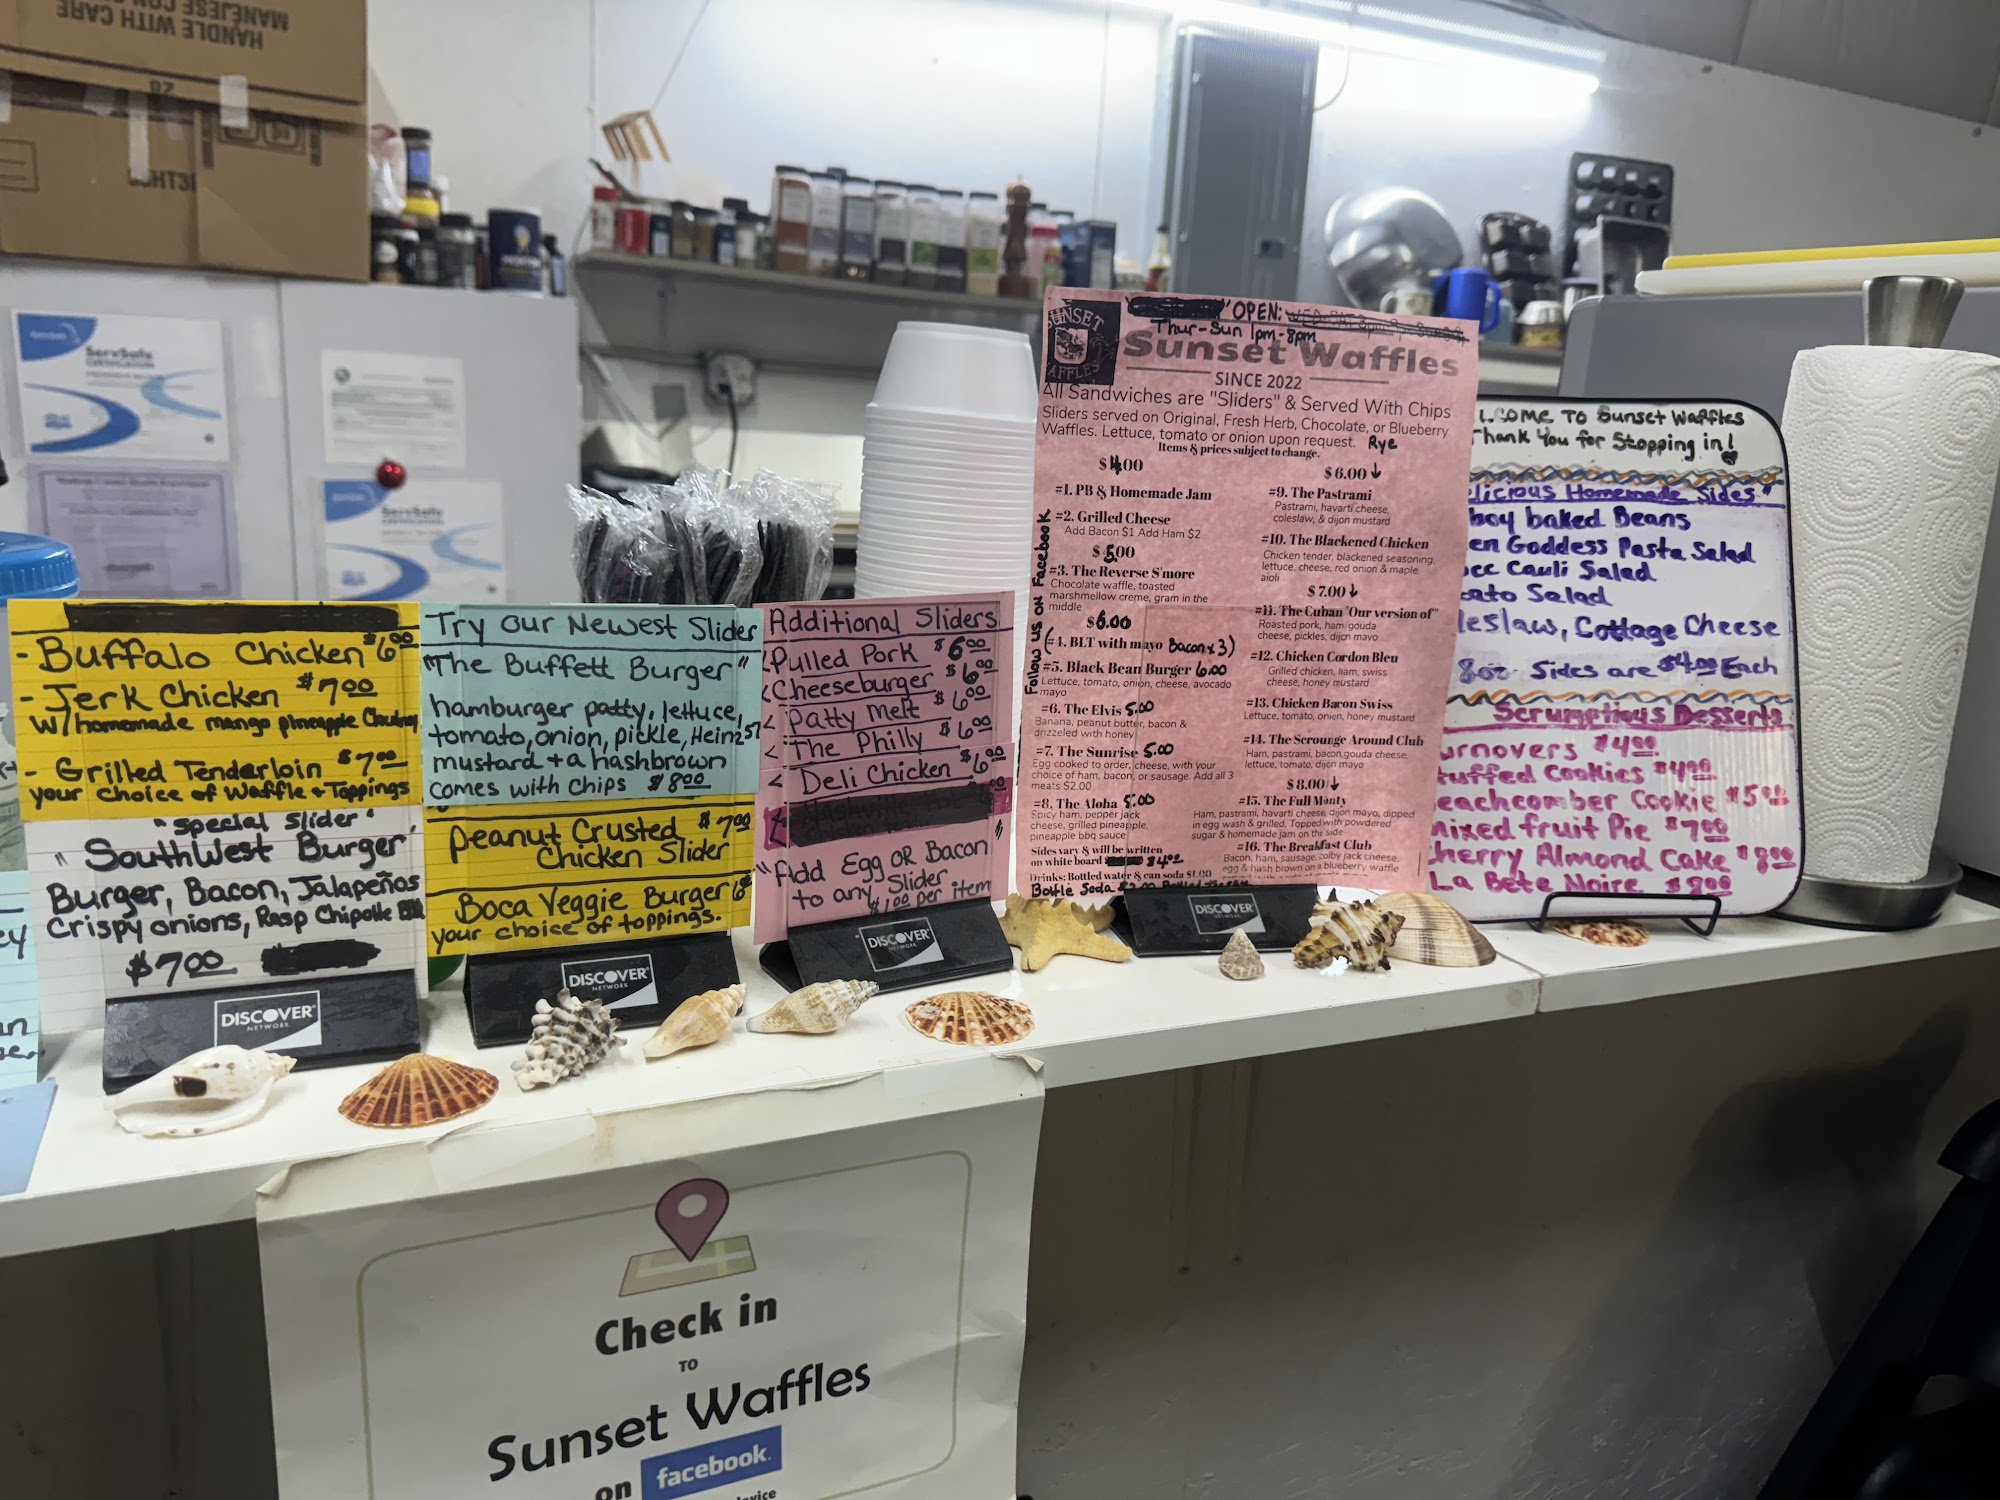 HANDLE WITH CARE
ServSafe
CERTIFICATION
ServSafe
CERTIFICATION
- Buffalo Chicken $6.00
- Jerk Chicken $7.00
w/homemade mango pineapple Chutney
- Grilled Tenderloin $7.00
your choice of Waffle & Toppings
"Special Slider"
"SouthWest Burger"
Burger, Bacon, Jalapeños
Crispy onions, Rasp Chipotle
$7.00
DISCOVER
NETWORK
Try our Newest Slider
"The Buffett Burger"
hamburger patty, lettuce,
tomato, onion, pickle, Heinz 57
mustard + a hashbrown
comes with Chips $8.00
Peanut Crusted $7.00
Chicken Slider
Boca Veggie Burger
your choice of toppings.
DISCOVER
NETWORK
Additional Sliders
Pulled Pork $6.00
Cheeseburger $6.00
Patty Melt $6.00
The Philly $6.00
Deli Chicken $6.00
"Add Egg OR Bacon
to any Slider
$1.00 per item
DISCOVER
NETWORK
OPEN:
Thur-Sun 1pm-8pm
SUNSET
WAFFLES
Sunset Waffles
SINCE 2022
All Sandwiches are "Sliders" & Served With Chips
Sliders served on Original, Fresh Herb, Chocolate, or Blueberry
Waffles. Lettuce, tomato or onion upon request. Rye
Items & prices subject to change.
Follow us on Facebook
$4.00
#1. PB & Homemade Jam
#2. Grilled Cheese
Add Bacon $1 Add Ham $2
$5.00
#3. The Reverse S'more
Chocolate waffle, toasted
marshmellow creme, gram in the
middle
$6.00
#4. BLT with mayo Bacon x 3)
#5. Black Bean Burger 6.00
Lettuce, tomato, onion, cheese, avocado
mayo
#6. The Elvis 5.00
Banana, peanut butter, bacon &
drizzeled with honey
#7. The Sunrise 5.00
Egg cooked to order, cheese, with your
choice of ham, bacon, or sausage. Add all 3
meats $2.00
#8. The Aloha 5.00
Spicy ham, pepper jack
cheese, grilled pineapple,
pineapple bbq sauce
Sides vary & will be written
on white board $4.00
Drinks: Bottled water & can soda $1.00
Bottle Soda $2.00
$6.00
#9. The Pastrami
Pastrami, havarti cheese,
coleslaw, & dijon mustard
#10. The Blackened Chicken
Chicken tender, blackened seasoning,
lettuce, cheese, red onion & maple
aioli
$7.00
#11. The Cuban "Our version of"
Roasted pork, ham, gouda
cheese, pickles, dijon mayo
#12. Chicken Cordon Bleu
Grilled chicken, ham, swiss
cheese, honey mustard
#13. Chicken Bacon Swiss
Lettuce, tomato, onion, honey mustard
#14. The Scrounge Around Club
Ham, pastrami, bacon, gouda cheese,
lettuce, tomato, dijon mayo
$8.00
#15. The Full Monty
Ham, pastrami, havarti cheese, dijon mayo, dipped
in egg wash & grilled, Topped with powdered
sugar & homemade jam on the side
#16. The Breakfast Club
Bacon, ham, sausage, colby jack cheese,
egg & hash brown on a blueberry waffle
DISCOVER
NETWORK
LCOME TO Sunset Waffles
Thank You for Stopping in!
elicious Homemade Sides"
boy baked Beans
en Goddess Pasta Salad
occ Cauli Salad
tato Salad
leslaw, Cottage Cheese
8oz. Sides are $4.00 Each
Scrumptious Desserts
urnovers $4.00
tuffed Cookies $4.00
eachcomber Cookie $5.00
mixed fruit Pie $7.00
Cherry Almond Cake $8.00
La Bete Noire $8.00
Check in
TO
Sunset Waffles
on facebook.